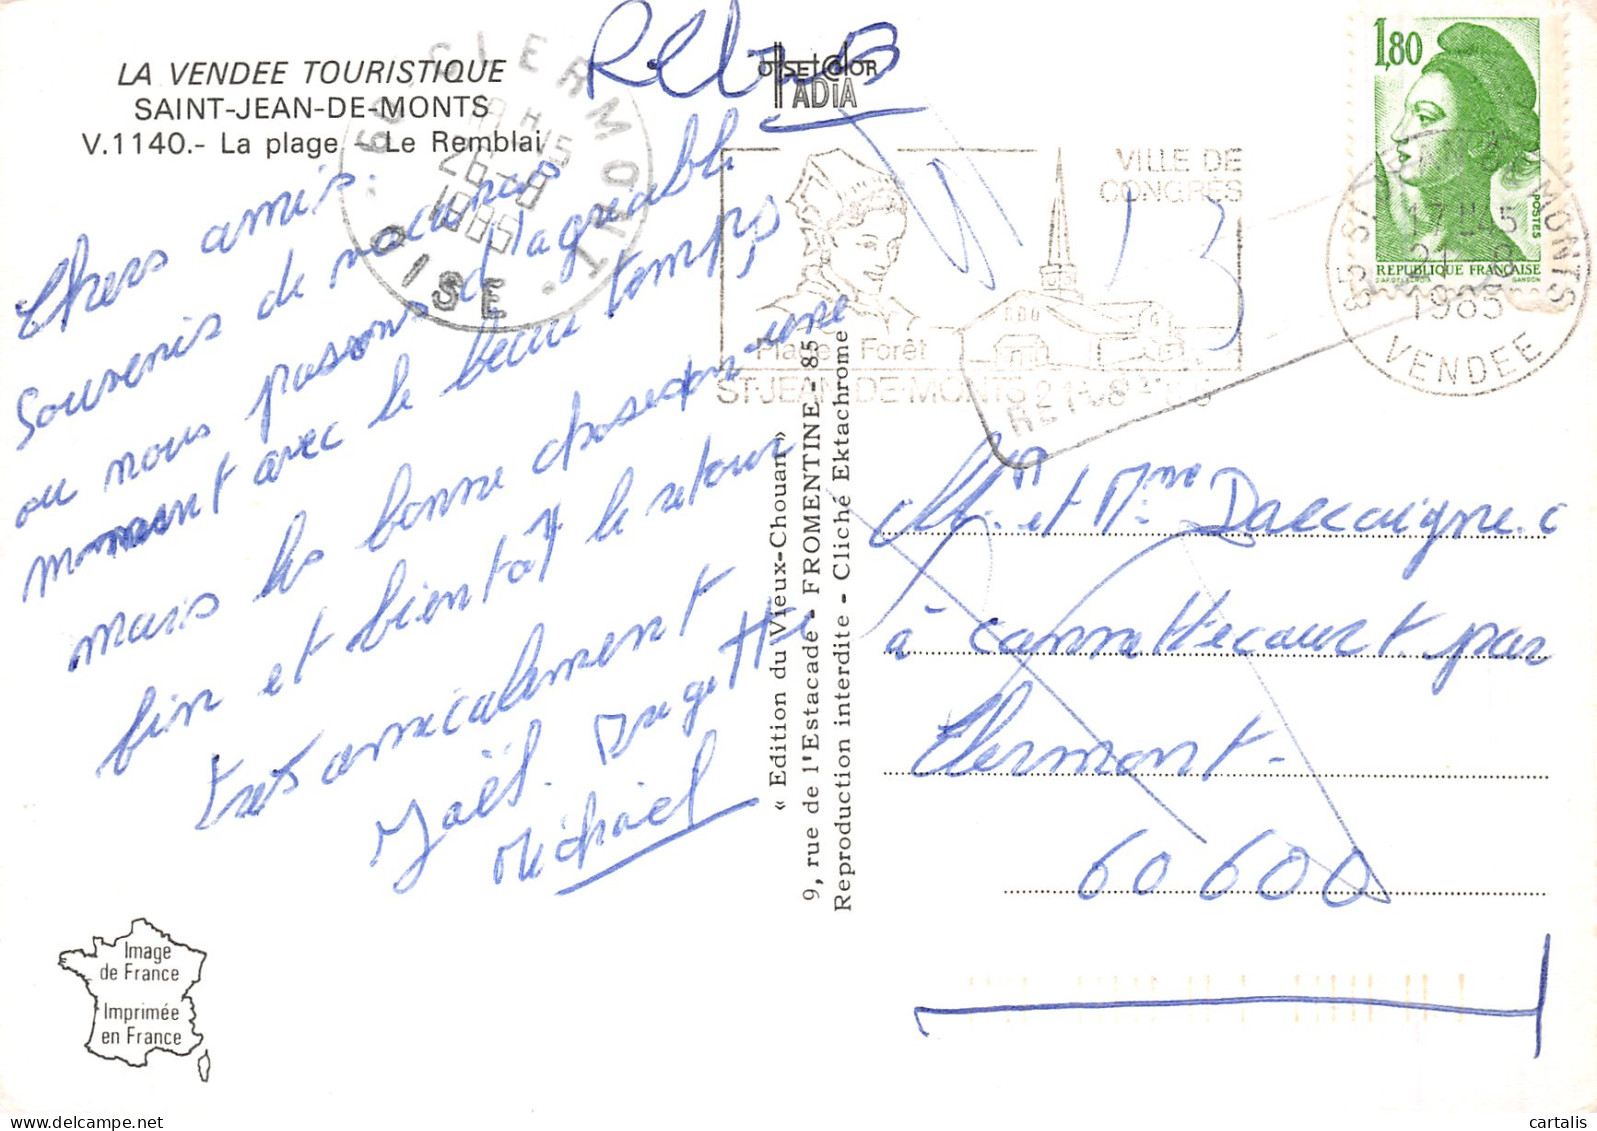 LA VENDEE TOURISTIQUE
SAINT-JEAN-DE-MONTS
V.1140.- La plage - Le Remblai
Chers amis.
Souvenirs de vacances
ou nous passons d'agreable
moment avec le beau temps,
mais les bonne choses on une
fin et bientôt le retour
tres amicalement
Joël. Huguette
Michaël
offset color
IADIA
60 CLERMONT
18 H 15
26-8
1985
OISE
VILLE DE
CONGRES
Plage Forêt
ST-JEAN-DE-MONTS
21-8
1,80
POSTES
REPUBLIQUE FRANÇAISE
GANDON
85 ST JEAN DE MONTS
17 H 45
21
1985
VENDEE
« Edition du Vieux-Chouan »
9, rue de l'Estacade - FROMENTINE - 85
Reproduction interdite - Cliché Ektachrome
Mr et Mme
à par
Clermont.
60600
13
Image
de France
Imprimée
en France
cartalis